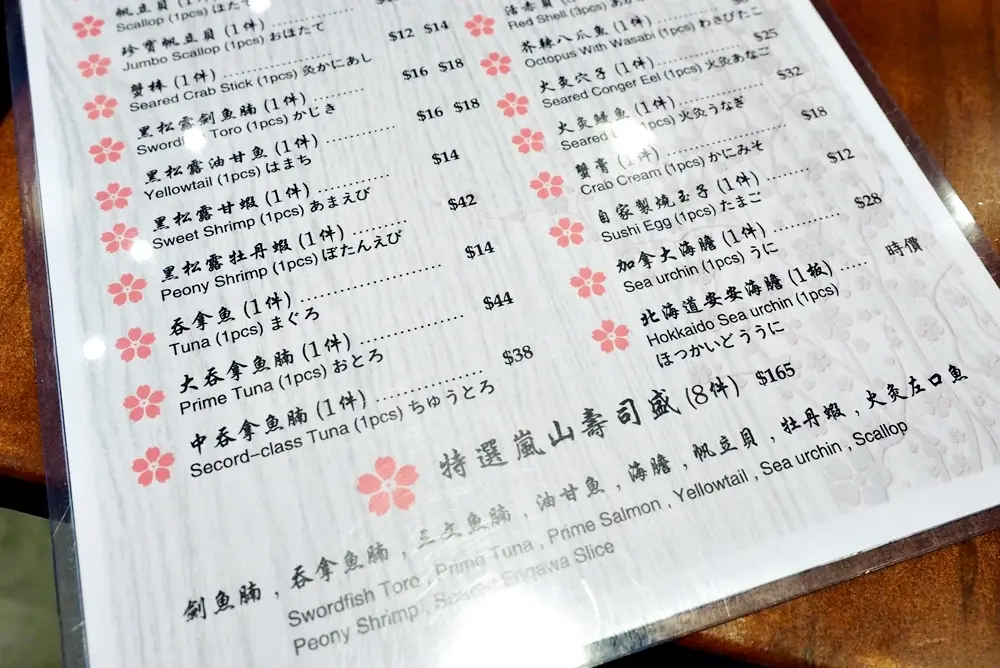 帆立貝 (1件)
Scallop (1pcs) ほたて
珍寶帆立貝 (1件)
Jumbo Scallop (1pcs) おほたて
蟹棒 (1件) $12 $14
Seared Crab Stick (1pcs) 炙かにあし
黑松露劍魚腩 (1件) $16 $18
Swordfish Toro (1pcs) かじき
黑松露油甘魚 (1件) $16 $18
Yellowtail (1pcs) はまち
黑松露甘蝦 (1件) $14
Sweet Shrimp (1pcs) あまえび
黑松露牡丹蝦 (1件) $42
Peony Shrimp (1pcs) ぼたんえび
吞拿魚 (1件) $14
Tuna (1pcs) まぐろ
大吞拿魚腩 (1件) $44
Prime Tuna (1pcs) おとろ
中吞拿魚腩 (1件) $38
Secord-class Tuna (1pcs) ちゅうとろ
活赤貝
Red Shell (3pcs)
芥辣八爪魚 (1件)
Octopus With Wasabi (1pcs) わさびたこ
火炙穴子 (1件) $25
Seared Conger Eel (1pcs) 火炙あなご
火炙 魚 (1件) $32
Seared (1pcs) 火炙うなぎ
蟹膏 (1件) $18
Crab Cream (1pcs) かにみそ
自家製燒玉子 (1件) $12
Sushi Egg (1pcs) たまご
加拿大海膽 (1件) $28
Sea urchin (1pcs) うに
北海道安安海膽 (1板) 時價
Hokkaido Sea urchin (1pcs)
ほつかいどううに
特選嵐山壽司盛 (8件) $165
劍魚腩 , 吞拿魚腩 , 三文魚腩 , 油甘魚 , 海膽 , 帆立貝 , 牡丹蝦 , 火炙左口魚
Swordfish Toro , Prime Tuna , Prime Salmon , Yellowtail , Sea urchin , Scallop
Peony Shrimp , Engawa Slice